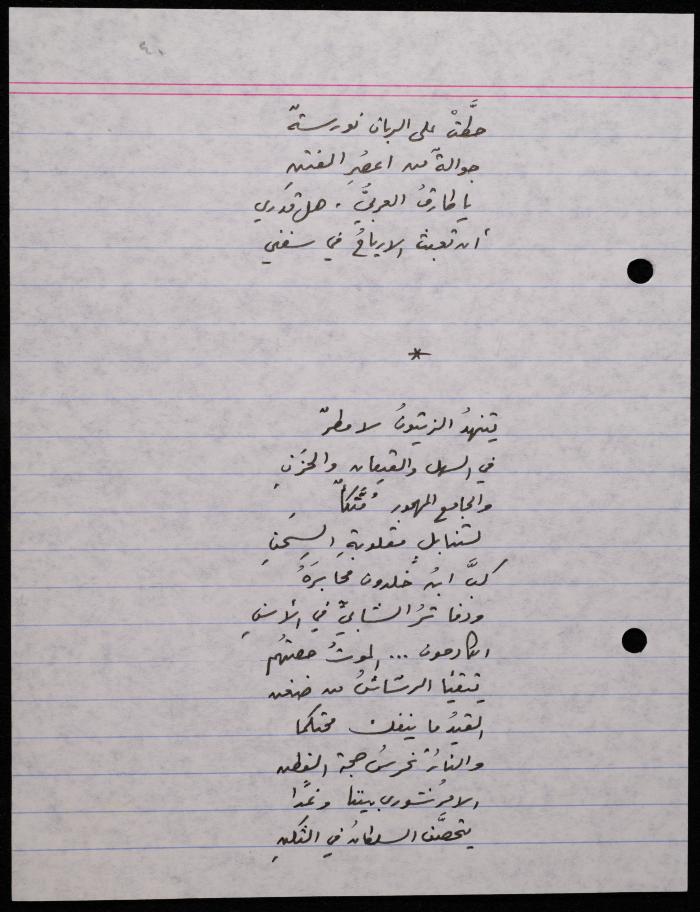 ٤٠
حطَّتْ على الربان نورسةٌ
جوالةٌ من اعصُرِ الفتنِ
يا طارقُ العربيُّ . هل تدري
أن تعبث الارياحُ في سفني
*
يتنهدُ الزيتونُ لا مطرٌ
في السهل والقيعان والحَزَنِ
والجامع المهجور مُتَّكأٌ
لسنابلٍ مقلوبةِ السِحَنِ
كبَّ ابنُ خُلدون محابرَهُ
ودفاترُ الشابيِّ في الأسنِ
الكادحون ... الموتُ حصتهُم
يتقيأ الرشاشُ من ضغن
القيدُ ما ينفك محتكما
والنارُ تخرسُ حجة الفطن
الامرُ شورى بيننا وغدًا
يتحصَّن السلطانُ في الثكنِ